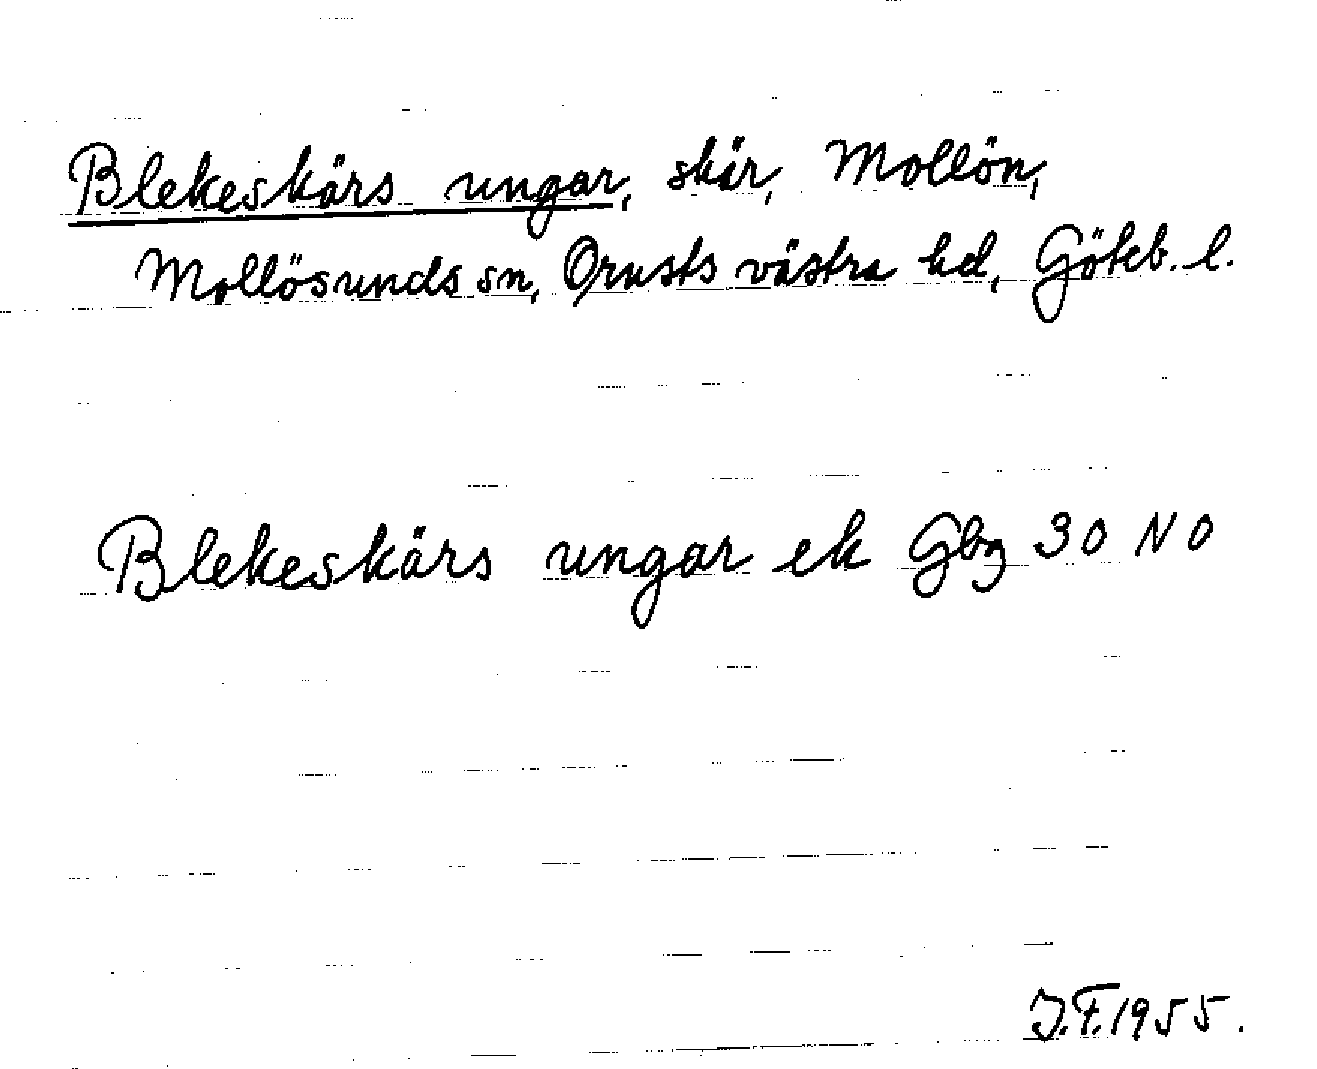 Blekeskärs ungar, skär, Mollön,
Mollösunds sn, Orusts västra hd, Göteb. l.
Blekeskärs ungar ek Gbg 30 NO
J.F. 1955.